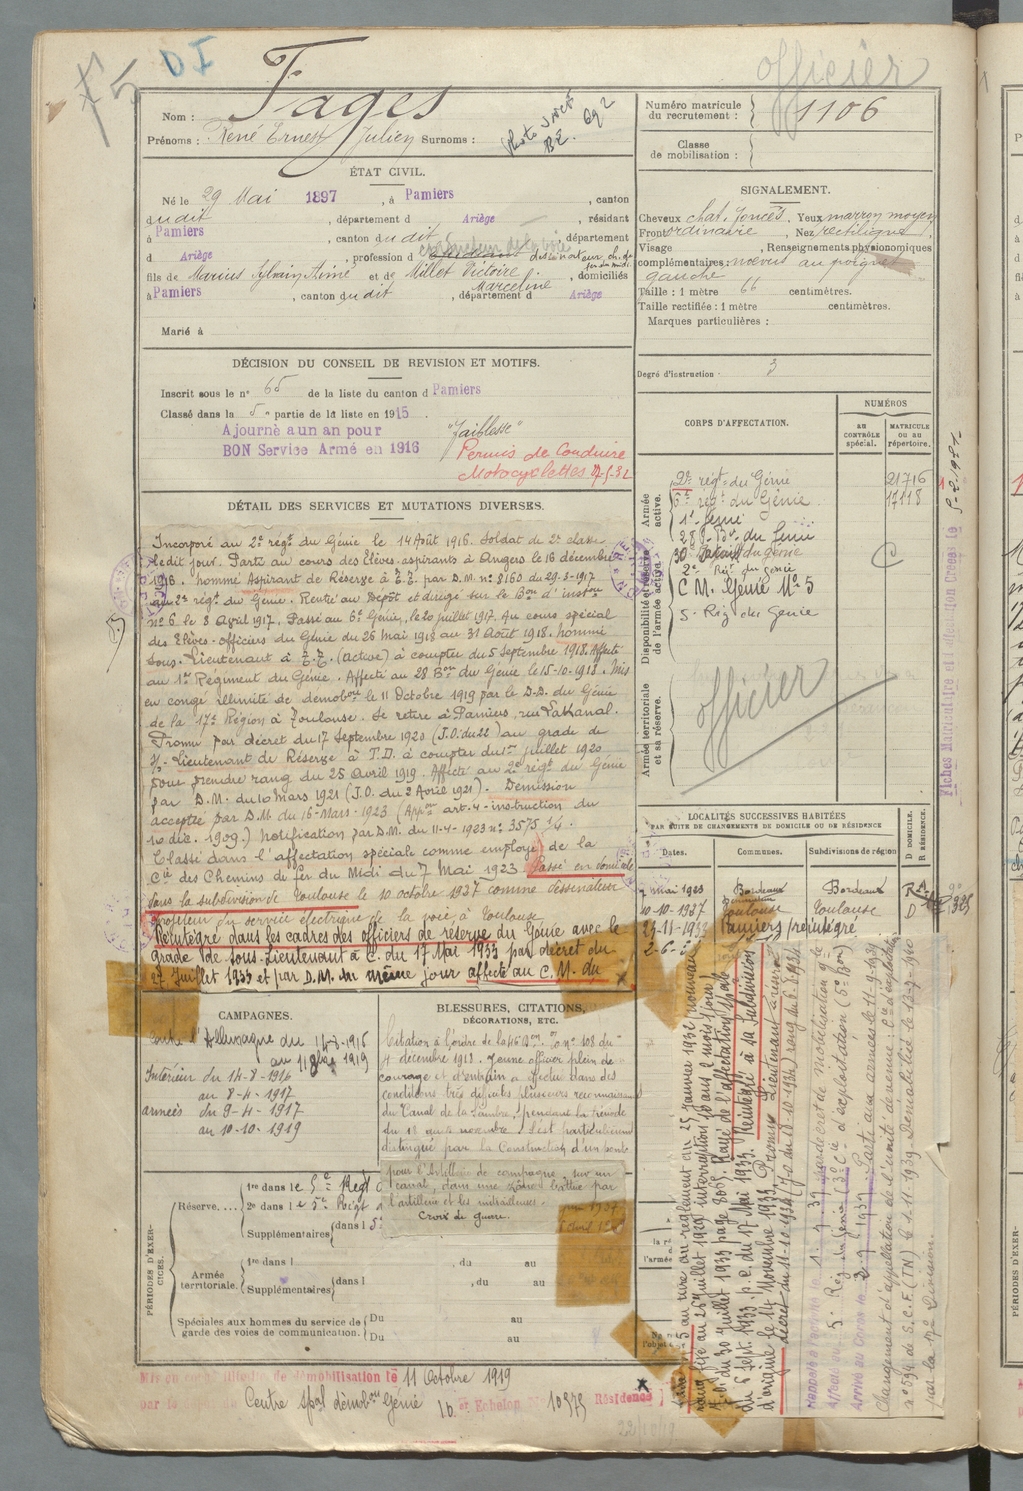 F5
DI
officier
Nom : Fages
Prénoms : René Ernest Julien Surnoms :
Photo
BE. 692
Numéro matricule du recrutement : 1106
Classe de mobilisation :
ÉTAT CIVIL.
Né le 29 Mai 1897, à Pamiers, canton
dudit, département d Ariège, résidant
à Pamiers, canton dudit, département
d Ariège, profession d dessinateur ch. de
fils de Marius Sylvain Aimé et de Millet Victoire Marceline, domiciliés
à Pamiers, canton dudit, département d Ariège
Marié à
SIGNALEMENT.
Cheveux chat. foncés, Yeux marron moyen
Front ordinaire, Nez rectiligne
Visage , Renseignements physionomiques
complémentaires : nœvus au poignet
gauche
Taille : 1 mètre 66 centimètres.
Taille rectifiée : 1 mètre centimètres.
Marques particulières :
Degré d'instruction : 3
DÉCISION DU CONSEIL DE REVISION ET MOTIFS.
Inscrit sous le n° 65 de la liste du canton d Pamiers
Classé dans la 5e partie de la liste en 1915.
Ajourné a un an pour "faiblesse"
BON Service Armé en 1916
Permis de Conduire
Motocyclettes
DÉTAIL DES SERVICES ET MUTATIONS DIVERSES.
Incorporé au 2e régt du Génie le 14 Août 1916. Soldat de 2e classe
ledit jour. Parti au cours des Elèves-aspirants à Angers le 16 décembre
1916. nommé Aspirant de Réserve à T.T. par D.M. n° 8160 du 29-3-1917
au 2e régt du Génie. Rentré au Dépôt et dirigé sur le Bon d'inston
n° 6 le 8 Avril 1917. Passé au 6e Génie, le 20 juillet 1917. Au cours spécial
des Elèves-officiers du Génie du 26 Mai 1918 au 31 Août 1918. nommé
Sous-Lieutenant à T.T. (active) à compter du 5 Septembre 1918. Affecté
au 1er Régiment du Génie. Affecté au 28 Bon du Génie le 15-10-1918. Mis
en congé illimité de démobon le 11 Octobre 1919 par le D.D. du Génie
de la 17e Région à Toulouse. Se retire à Pamiers, rue Lakanal.
Promu par décret du 17 Septembre 1920 (J.O. du 22) au grade de
S/-Lieutenant de Réserve à T.D. à compter du 1er juillet 1920
pour prendre rang du 25 Avril 1919. Affecté au 2e régt du Génie
par D.M. du 10 Mars 1921 (J.O. du 2 Avril 1921). Démission
acceptée par D.M. du 16-Mars-1923 (Appon art. 4-instruction du
10 déc. 1909.) Notification par D.M. du 11-4-1923 n° 3575 1/4.
Classé dans l'affectation spéciale comme employé de la
Cie des Chemins de fer du Midi du 7 Mai 1923. Passé en domicile
dans la subdivision de Toulouse le 10 octobre 1927 comme dessinateur
projeteur du service électrique de la voie à Toulouse
Réintégré dans les cadres des officiers de réserve du Génie avec le
grade de sous-Lieutenant à C. du 17 Mai 1933 par décret du
27 Juillet 1933 et par D.M. du même jour affecté au C.M. du
CORPS D'AFFECTATION.
NUMÉROS
AU CONTRÔLE spécial.
MATRICULE OU AU répertoire.
Armée active.
2e régt du Génie 21716
6e régt du Génie 17118
Disponibilité et réserve de l'armée active.
1er Génie
28e Bon du Génie
30e Bataill du génie C
2e Régt du génie
C M. Génie N° 5
5e Rég du Génie
Armée territoriale et sa réserve.
officier
Fiches Matriculaire et d'Affection Créées le 5-2-1921
LOCALITÉS SUCCESSIVES HABITÉES
PAR SUITE DE CHANGEMENTS DE DOMICILE OU DE RÉSIDENCE
Dates. Communes. Subdivisions de région D DOMICILE. R RÉSIDENCE.
7 mai 1923 Bordeaux Bordeaux R
10-10-1927 Toulouse Toulouse D
Pamiers préintégré
CAMPAGNES.
Contre l'Allemagne du
Intérieur du 14-8-1916
au 8-4-1917
armées du 9-4-1917
au 10-10-1919
BLESSURES, CITATIONS, DÉCORATIONS, ETC.
Citation à l'ordre de la n° 108 du
4 décembre 1918. Jeune officier plein de
courage et d'entrain a effectué dans des
conditions très difficiles plusieurs reconnaissances
du Canal de la Sambre, pendant la période
du au 4 novembre. S'est particulièrement
distingué par la Construction d'un ponte
pour l'Artillerie de campagne sur un
canal, dans une zône battue par
l'artillerie et les mitrailleuses.
Croix de guerre.
PÉRIODES D'EXERCICES.
Réserve....
1re dans le 5e Régt
2e dans le 5e Régt
Supplémentaires dans l 5e
Armée territoriale.
1re dans l , du au
Supplémentaires dans l , du au
Spéciales aux hommes du service de garde des voies de communication.
Du au
Du au
au titre du règlement du 25 Janvier 1932 (nouveau
rang fixé au 26 juillet 1929 interruption 3 ans 2 mois 9 jours)
J.O. du 30 Juillet 1933 page 8065 Rayé de l'affectation spéciale
du 5 Sept. 1933 p. c. du 17 Mai 1933. Réintégré à sa Subdivision
d'origine le 14 Novembre 1933. Promu Lieutenant à réserve
décret du 11-10-1934 (J.O. du 18-10-1934)
Rappelé à l'activité le 1. 9 39 par décret de mobilisation gle
Affecté au 5e Rég du Génie (3e Cie d'exploitation (5e Bon)
Arrivé au Corps le 2. 9 1939. Parti aux armées le 11-9-1939
Changement d'appellation de l'unité devenue :
par la 17e Division.
Mis en congé illimité de démobilisation le 11 Octobre 1919
par le Centre spal démobon Génie 10e Echelon N° 10575 Résidence
22/10/19